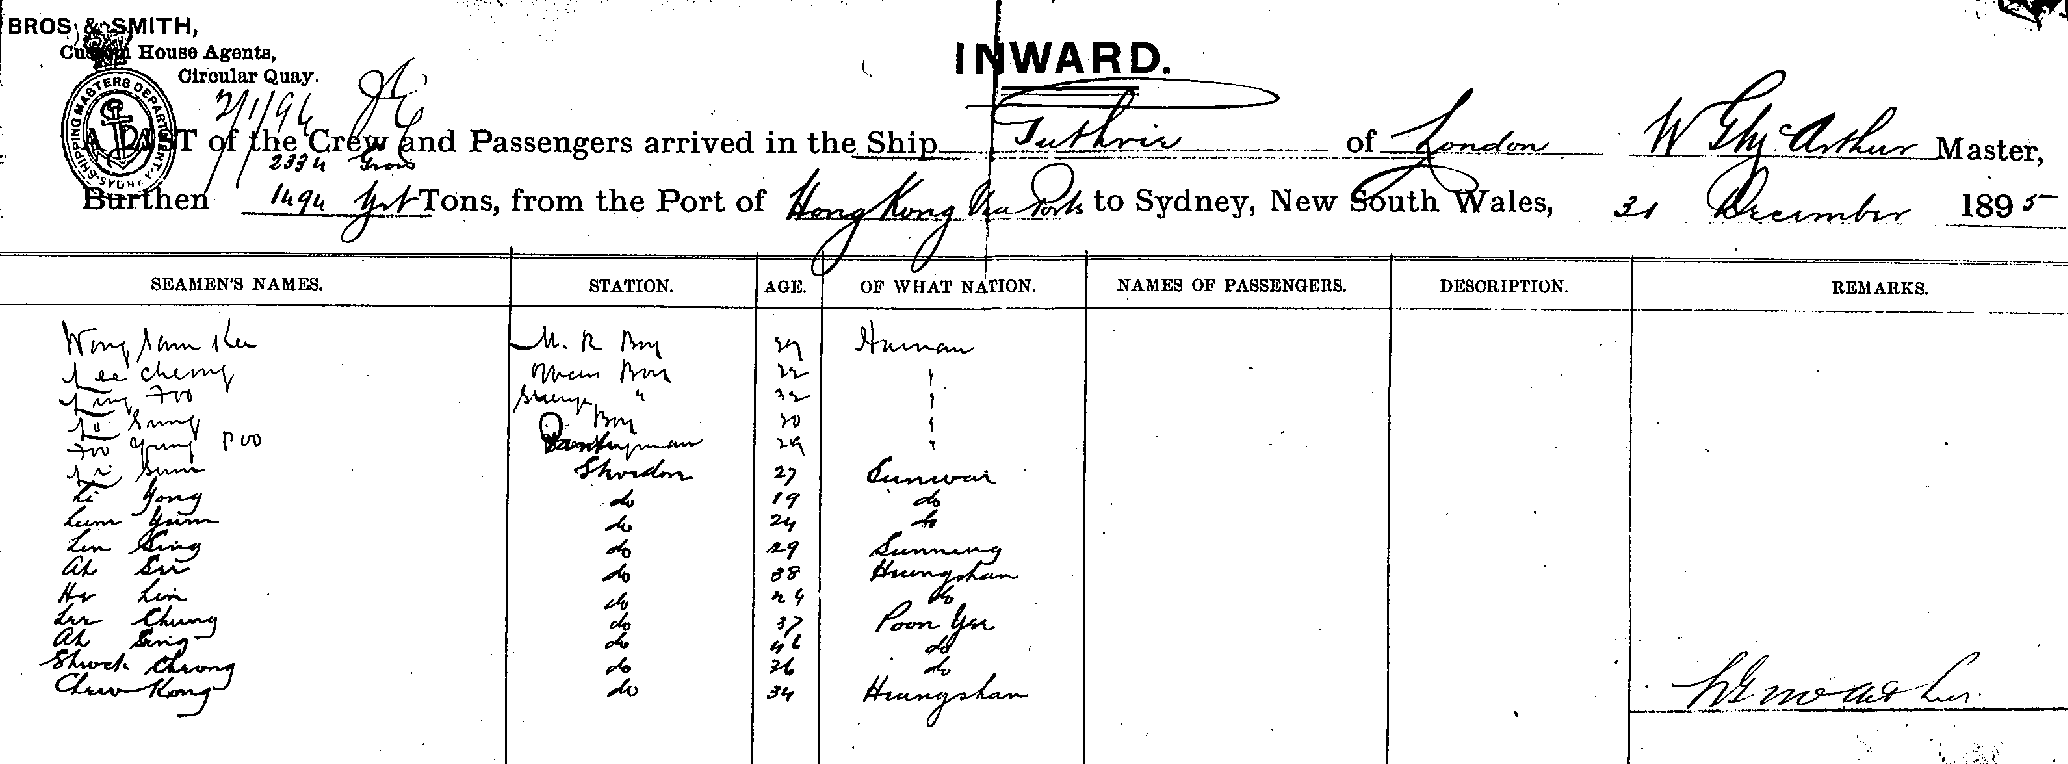 BROS & SMITH,
Custom House Agents,
Circular Quay.
SHIPPING MASTERS DEPARTMENT SYDNEY
2/1/96
INWARD.
A LIST of the Crew and Passengers arrived in the Ship Guthrie of London W G McArthur Master,
2334 Gross
Burthen 1494 Tons, from the Port of Hong Kong via Ports to Sydney, New South Wales, 31 December 1895
SEAMEN'S NAMES. STATION. AGE. OF WHAT NATION. NAMES OF PASSENGERS. DESCRIPTION. REMARKS.
Wong Sam Kee M. R Boy 29 Hainan
Lee Cheong Mess Boy 22 "
Ling Foo " 32 "
Sung Boy 20 "
Foo Yung Poo Pantryman 29 "
Sum 27 Sunwai
Li Yong do 19 do
Lum Yum do 24 do
Lin Sing do 29 Sunning
Ah See do 38 Heungshan
Ho Lin do 24 do
Lee Chung do 37 Poon Yee
Ah Sing do 46 do
Cheong do 26 do
Chew Kong do 34 Heungshan
W G McArthur